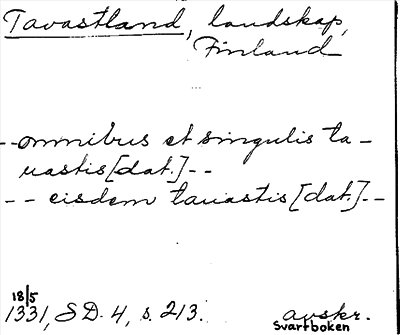 Tavastland, landskap,
Finland
--omnibus et singulis ta-
uastis [dat.]--
-- eisdem tauastis [dat.]--
18/5
1331, SD. 4, s. 213. avskr.
Svartboken